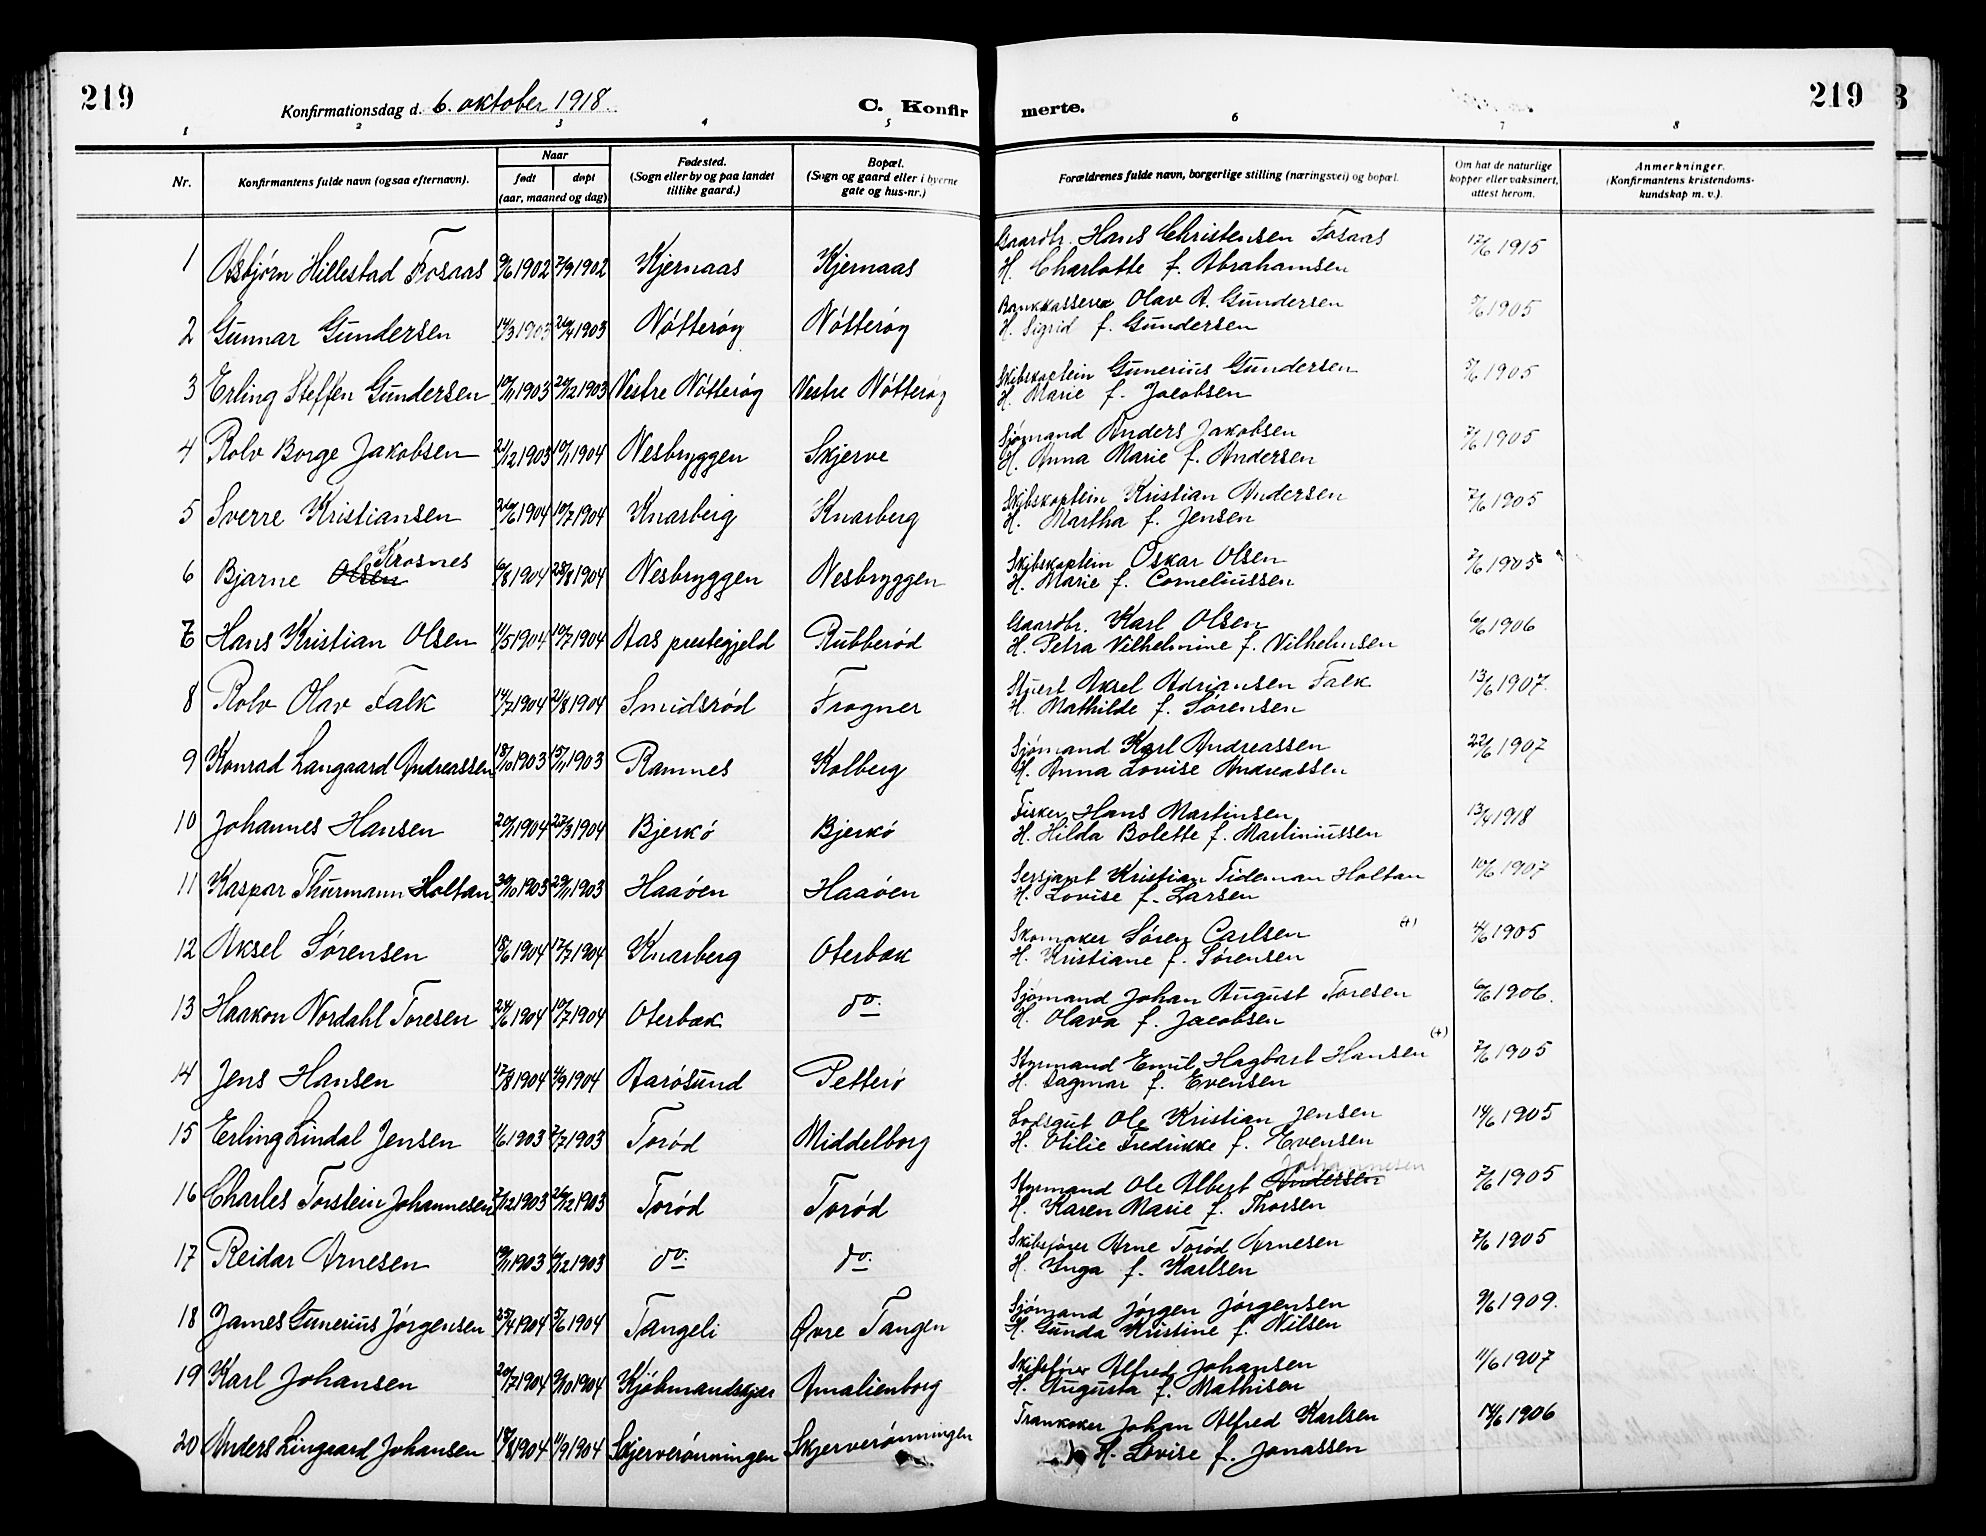 219
Konfirmationsdag d. 6. oktober 1918.
C. Konfirmerte.
219
1 2 3 4 5 6 7 8
Nr.
Konfirmantens fulde navn (ogsaa efternavn).
Naar
født døpt
(aar, maaned og dag)
Fødested.
(Sogn eller by og paa landet
tillike gaard.)
Bopæl.
(Sogn og gaard eller i byerne
gate og hus-nr.)
Forældrenes fulde navn, borgerlige stilling (næringsvei) og bopæl.
Om hat de naturlige
kopper eller vaksinert,
attest herom.
Anmerkninger.
(Konfirmantens kristendoms-
kundskap m. v.).
1 Asbjørn Hillestad Fosaas 9/6 1902 7/9 1902 Kjernaas Kjernaas Gaardbr. Hans Christensen Fosaas 17/6 1915
H. Charlotte f. Abrahamsen
2 Gunnar Gundersen 14/3 1903 26/4 1903 Nøtterøy Nøtterøy Bankkasserer Olav A. Gundersen 1905
H. Sigrid f. Gundersen
3 Erling Steffen Gundersen 10/11 1903 20/12 1903 Vestre Nøtterøy Vestre Nøtterøy Skibskaptein Gunerius Gundersen 5/6 1905
H. Marie f. Jacobsen
4 Rolv Borge Jakobsen 21/12 1903 10/1 1904 Nesbryggen Skjerve Sjømand Anders Jakobsen 7/6 1905
H. Anna Marie f. Andersen
5 Sverre Kristiansen 20/6 1904 10/7 1904 Knarberg Knarberg Skibskaptein Kristian Andersen 7/6 1905
H. Martha f. Jensen
6 Bjarne Olsen Krosnes 6/8 1904 28/8 1904 Nesbryggen Nesbryggen Skibskaptein Oskar Olsen 7/6 1905
H. Marie f. Corneliussen
7 Hans Kristian Olsen 11/5 1904 10/7 1904 Aas prestegjeld Rubberød Gaardbr. Karl Olsen 6/6 1906
H. Petra Vilhelmine f. Vilhelmsen
8 Rolv Olav Falk 14/7 1904 21/8 1904 Smidsrød Frogner Stuert Aksel Adriansen Falk 13/6 1907.
H. Mathilde f. Sørensen
9 Konrad Langaard Andreassen 18/10 1903 15/11 1903 Ramnes Kolberg Sjømand Karl Andreassen 22/6 1907
H. Anna Lovise Andreassen
10 Johannes Hansen 20/1 1904 27/3 1904 Bjerkø Bjerkø Fisker Hans Martinsen 13/4 1918
H. Hilda Bolette f. Martiniussen
11 Kaspar Thurmann Holtan 30/10 1903 29/11 1903 Haaøen Haaøen Sersjant Kristian Tideman Holtan 10/6 1907
H. Lovise f. Larsen
12 Aksel Sørensen 18/6 1904 17/7 1904 Knarberg Oterbæk Skomaker Søren Carlsen (+) 4/6 1905
H. Kristiane f. Sørensen
13 Haakon Nordahl Toresen 24/6 1904 10/7 1904 Oterbæk do. Sjømand Johan August Toresen 6/6 1906.
H. Olava f. Jacobsen
14 Jens Hansen 17/8 1904 4/9 1904 Aarøsund Petterø Styrmand Emil Hagbart Hansen (+) 7/6 1905
H. Dagmar f. Evensen
15 Erling Lindal Jensen 1/6 1903 7/7 1903 Torød Middelborg Lodsgut Ole Kristian Jensen 14/6 1905
H. Otilie Fredrikke f. Evensen
16 Charles Torstein Johannesen 7/12 1903 26/12 1903 Torød Torød Styrmand Ole Albert Andersen Johannesen 7/6 1905
H. Karen Marie f. Thorsen
17 Reidar Arnesen 19/11 1903 6/12 1903 do. do. Skibsfører Arne Torød Arnesen 7/6 1905
H. Inga f. Karlsen
18 James Gunerius Jørgensen 25/4 1904 5/6 1904 Tangeli Øvre Tangen Sjømand Jørgen Jørgensen 9/6 1909.
H. Gunda Kristine f. Nilsen
19 Karl Johansen 20/7 1904 9/10 1904 Kjøbmandskjær Amalienborg Skibsfører Alfred Johansen 11/6 1907
H. Augusta f. Mathisen
20 Anders Lingaard Johansen 18/8 1904 11/9 1904 Skjerverønningen Skjerverønningen Trankoker Johan Alfred Karlsen 14/6 1906
H. Lovise f. Jonassen